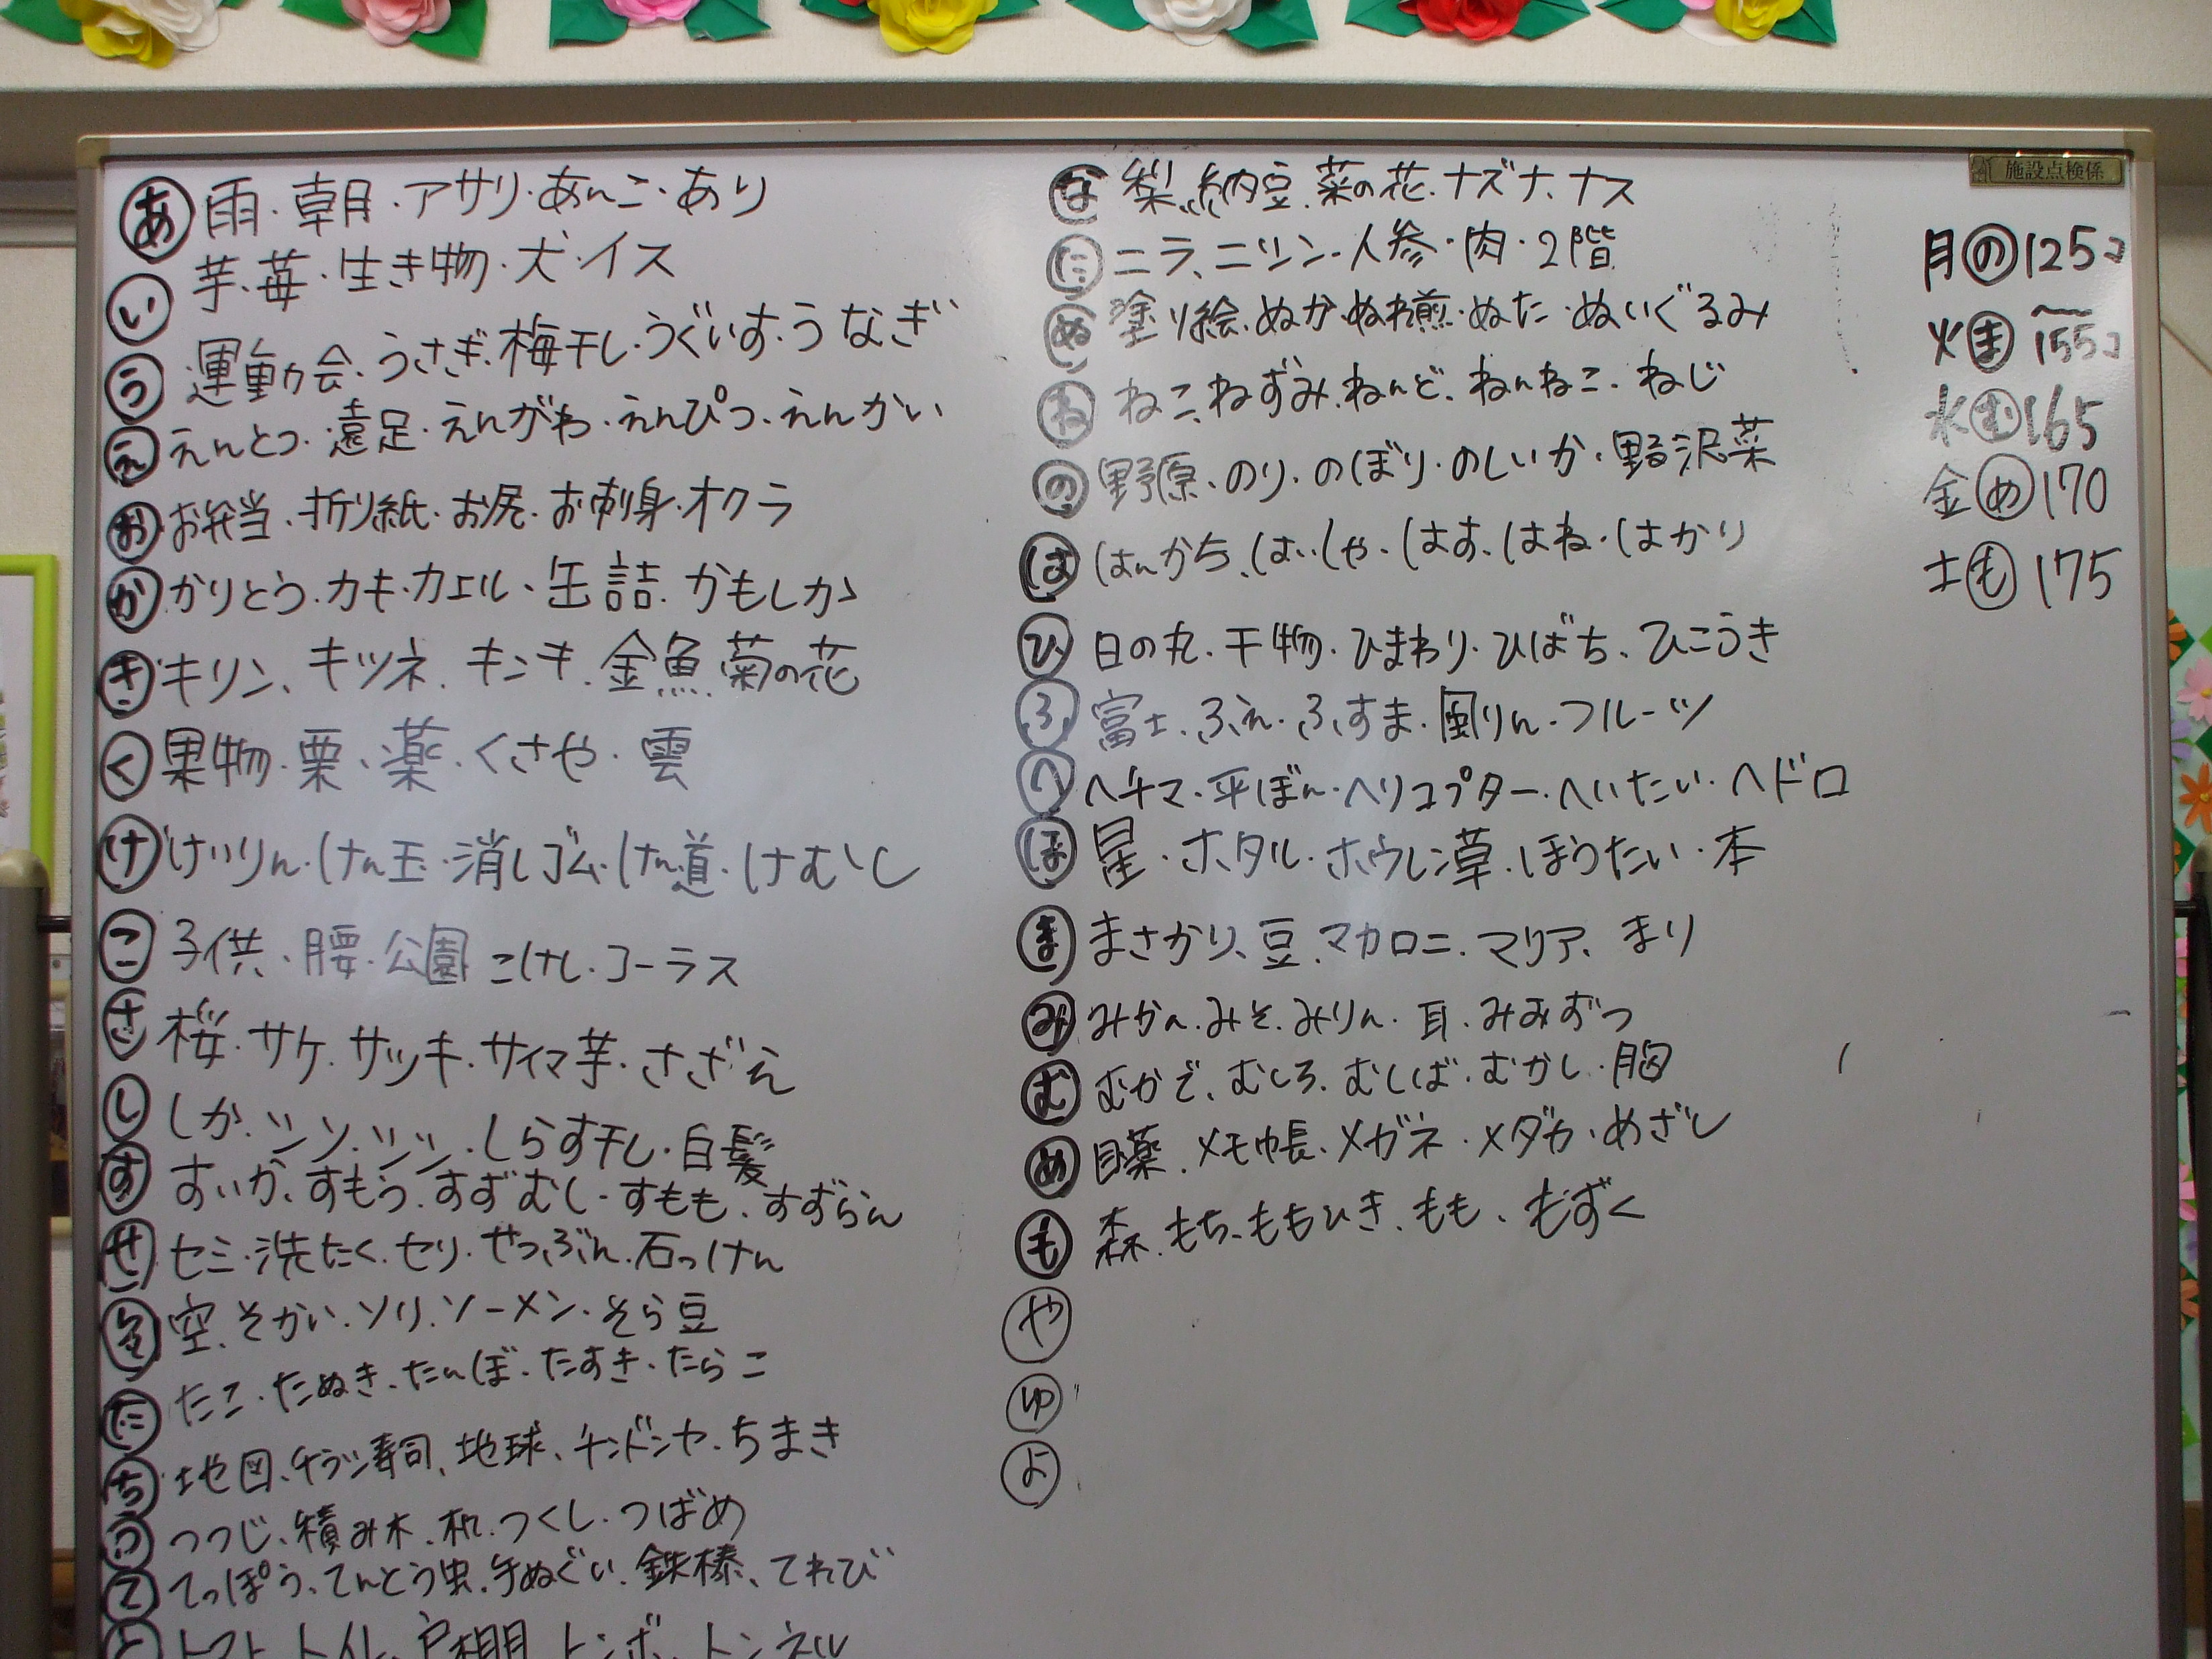 あ 雨・朝・アサリ・あんこ・あり
い 芋、苺・生き物・犬・イス
う 運動会・うさぎ・梅干し・うぐいす・うなぎ
え えんとつ・遠足・えんがわ・えんぴつ・えんかい
お お弁当、折り紙・お尻・お刺身・オクラ
か かりとう・カキ・カエル・缶詰・かもしか
き キリン、キツネ、キンキ、金魚、菊の花
く 果物・栗、薬・くさや・雲
け けいりん・けん玉・消しゴム・けん道・けむし
こ 子供・腰・公園 こけし・コーラス
さ 桜・サケ・サツキ・サツマ芋・さざえ
し しか・シソ・シシ・しらす干し・白髪
す すいか、すもう、すずむし・すもも、すずらん
せ セミ・洗たく・セリ・せつぶん・石っけん
そ 空、そかい、ソリ、ソーメン・そら豆
た たこ・たぬき、たんぼ・たすき・たらこ
ち 地図、チラシ寿司、地球、チンドンヤ・ちまき
つ つつじ、積み木、机、つくし・つばめ
て てっぽう、てんとう虫、手ぬぐい、鉄棒、てれび
と トマト、トイレ、戸棚、トンボ、トンネル
な 梨、納豆、菜の花・ナズナ、ナス
に ニラ、ニシン・人参・肉・2階
ぬ 塗り絵・ぬか・ぬれ煎・ぬた・ぬいぐるみ
ね ねこ、ねずみ、ねんど、ねんねこ・ねじ
の 野原・のり・のぼり・のしいか・野沢菜
は はんかち、はいしゃ・はす、はね・はかり
ひ 日の丸・干物・ひまわり・ひばち、ひこうき
ふ 富士、ふえ・ふすま・風りん・フルーツ
へ ヘチマ・平ぼん・ヘリコプター・へいたい・ヘドロ
ほ 星・ホタル・ホウレン草・ほうたい・本
ま まさかり、豆、マカロニ、マリア、まり
み みかん、みそ、みりん・耳・みみずつ
む むかで、むしろ、むしば・むかし・胸
め 目薬・メモ帳・メガネ・メダカ・めざし
も 森、もち、ももひき、もも、もずく
や
ゆ
よ
施設点検係
月の125コ
火ま155コ
水む165
金め170
土も175